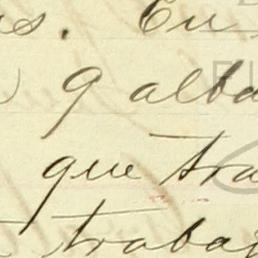 s. En
9 alba
que tra
trabaj